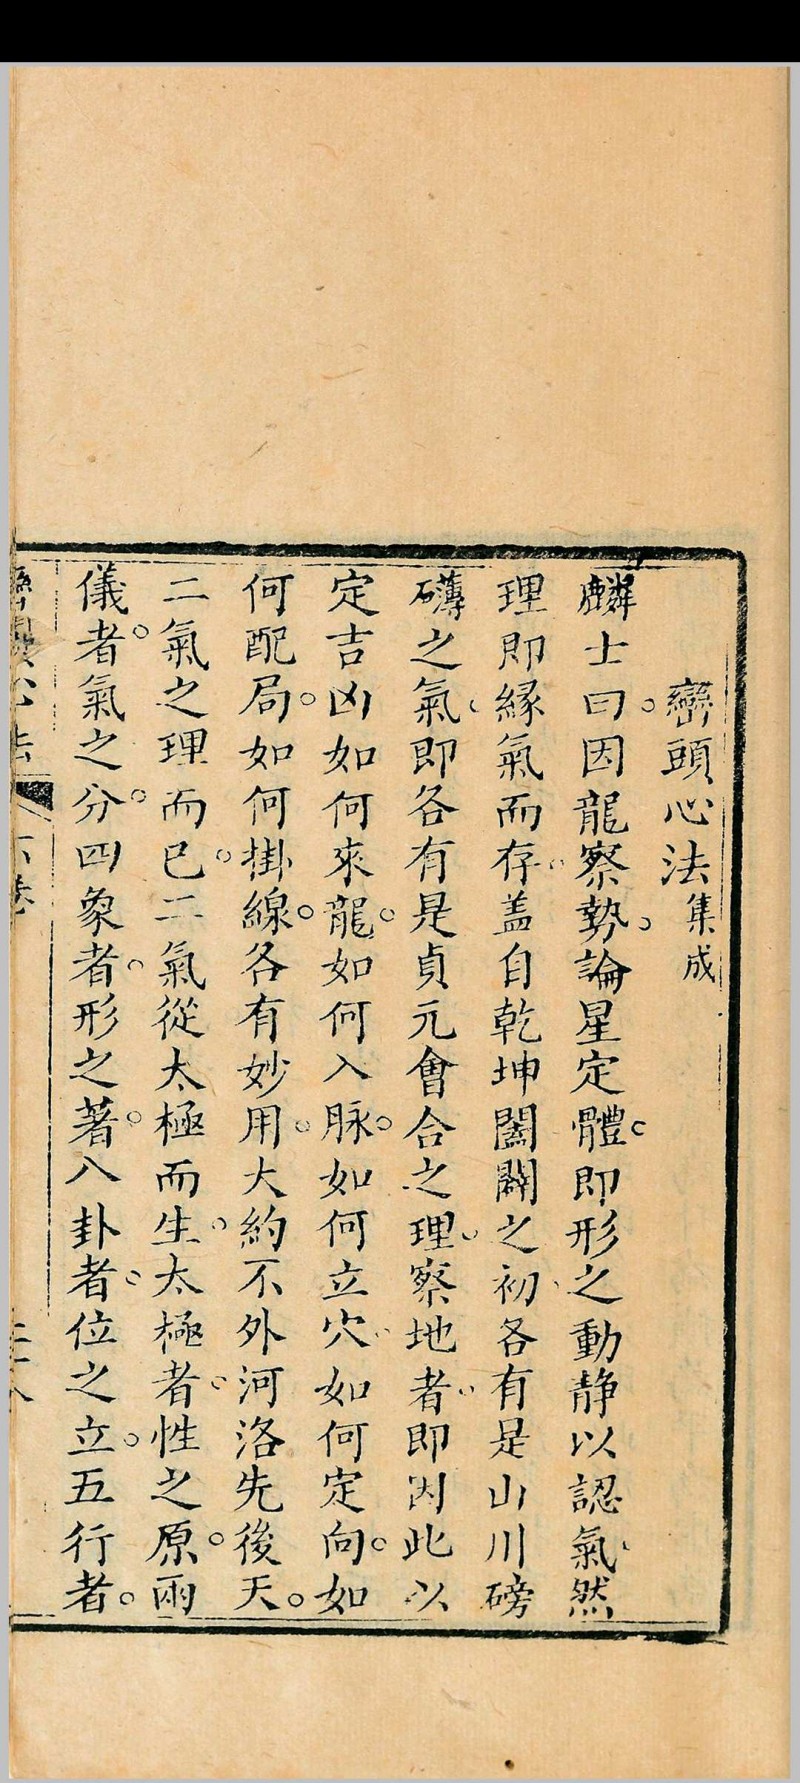 巒頭心法集成
麟士曰。因龍察勢。論星定體。即形之動静以認氣。然
理即緣氣而存。盖自乾坤闔闢之初。各有是山川磅
礴之氣。即各有是貞元會合之理。察地者。即因此以
定吉凶如何來龍。如何入脉。如何立穴。如何定向。如
何配局。如何掛線。各有妙用。大約不外河洛先後天。
二氣之理而已。二氣從太極而生。太極者。性之原。兩
儀者。氣之分。四象者。形之著。八卦者。位之立。五行者。
心法 卷